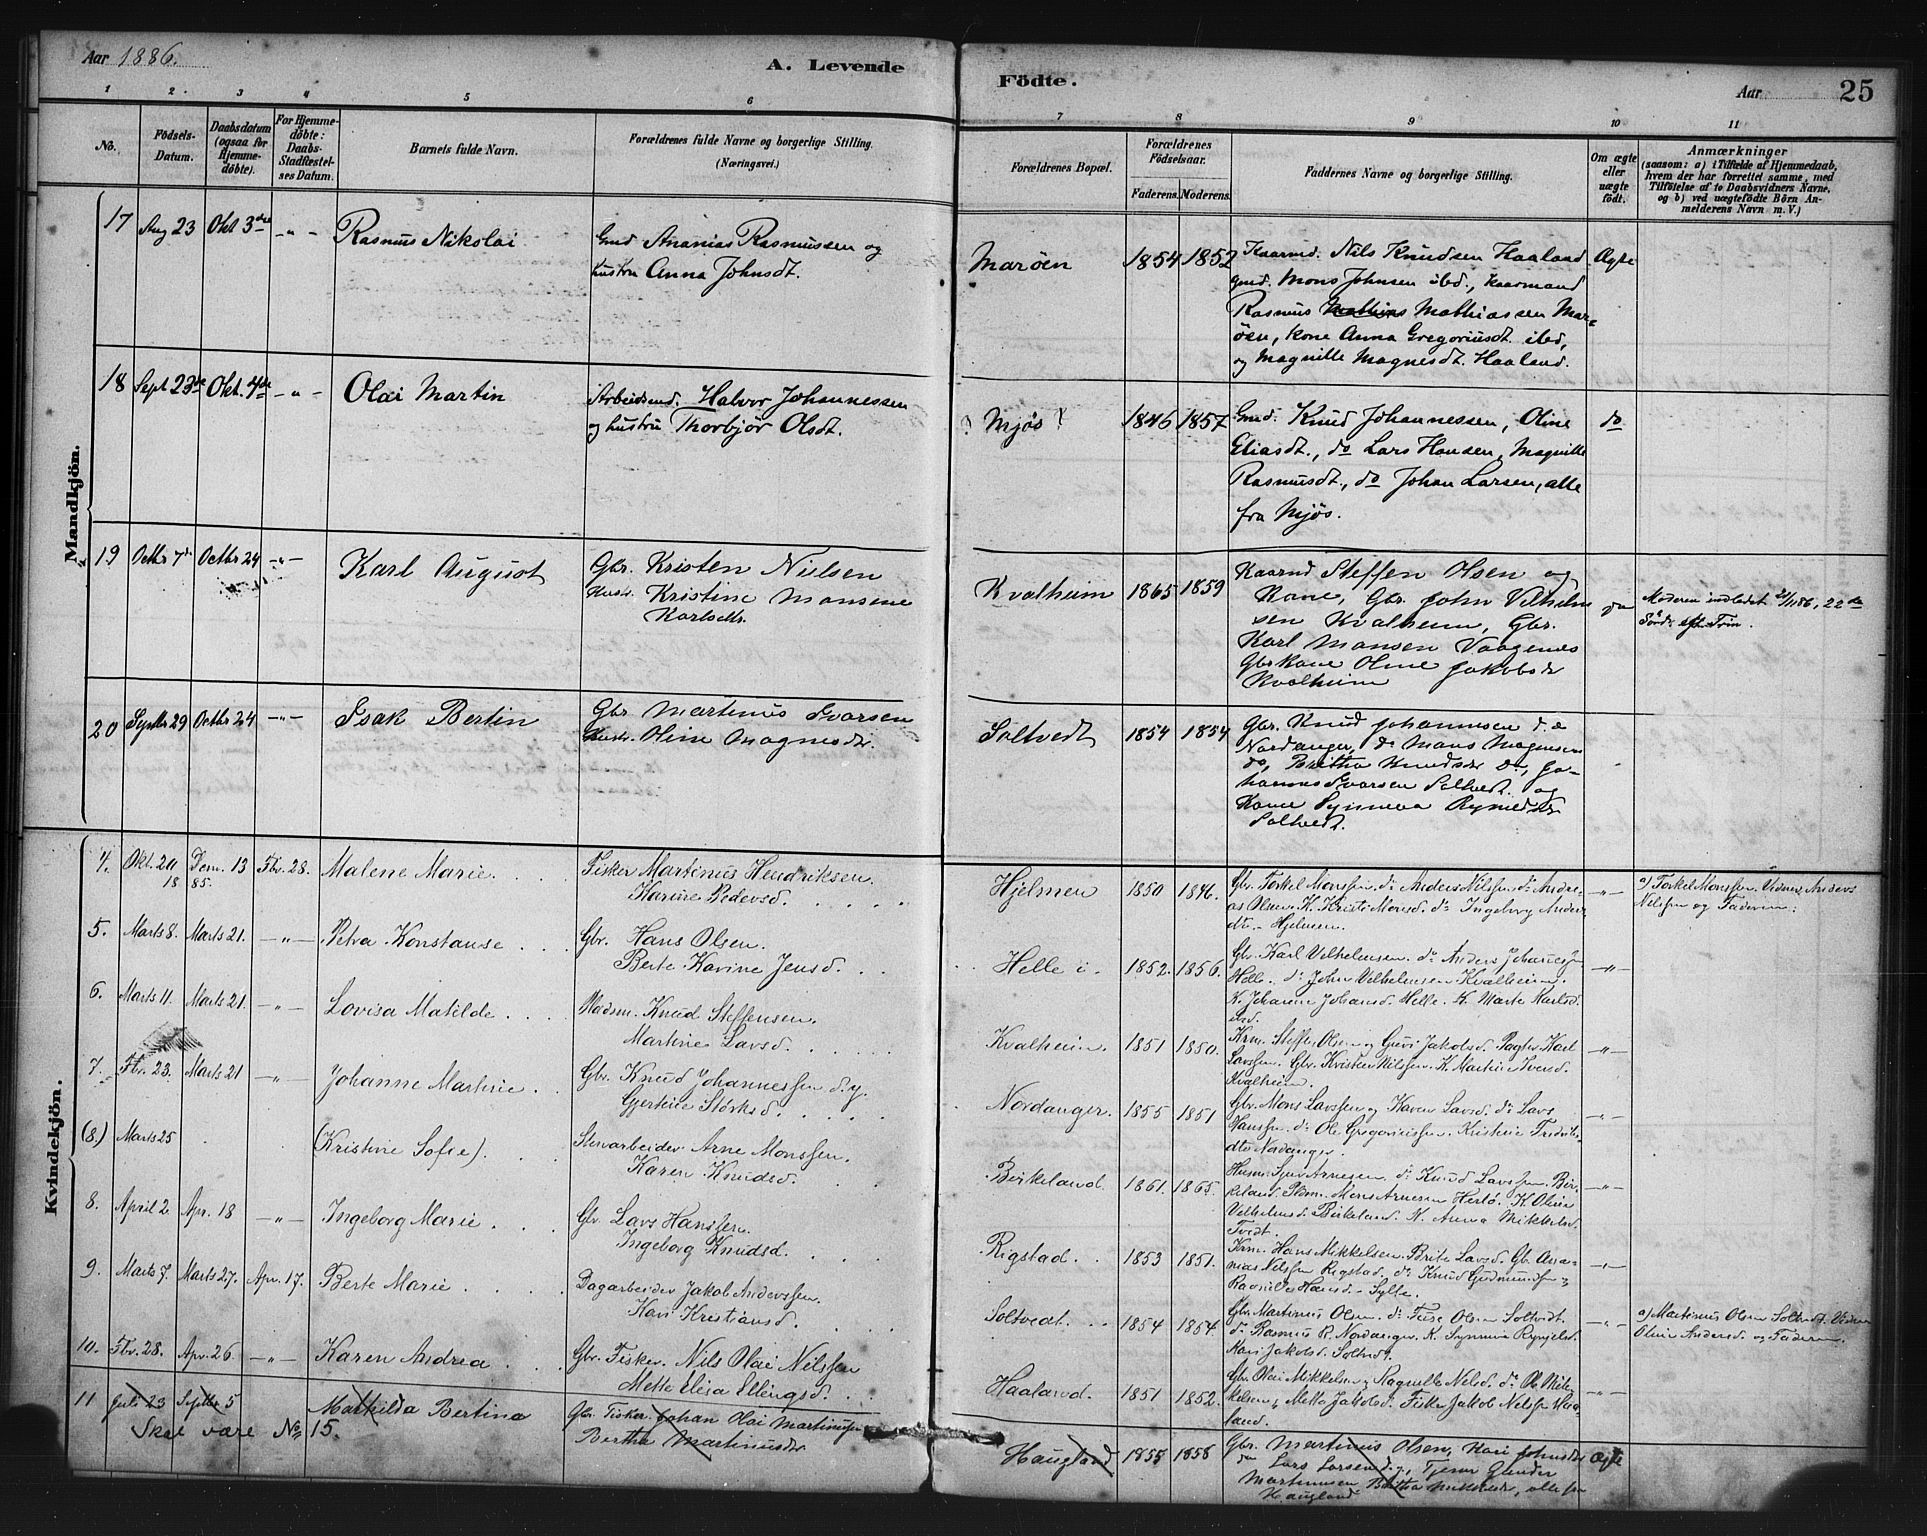 Aar 1886.
A. Levende
Födte.
Aar
25
1 2. 3 4 5 6
7 8 9 10 11
No.
Födsels-
Datum.
Daabsdatum
(ogsaa for
Hjemme-
döbte).
For Hjemme-
döbte:
Daabs-
Stadfæstel-
ses Datum.
Barnets fulde Navn.
Forældrenes fulde Navne og borgerlige Stilling.
(Næringsvei.)
Forældrenes Bopæl.
Forældrenes
Födselsaar.
Faderens. Moderens.
Faddernes Navne og borgerlige Stilling.
Om ægte
eller
uægte
födt.
Anmærkninger
(saasom: a) i Tilfælde af Hjemmedaab,
hvem der har forrettet samme, med
Tilföielse af to Daabsvidners Navne,
og b) ved uægtefödte Börn An-
melderens Navn m. V.)
Mandkjön.
17 Aug 23 Okt 3die - „ - Rasmus Nikolai
Gmd Ananias Rasmussen og
hustru Anna Johnsdt.
Marøen 1854 1852
Kaarmd. Nils Knudsen Haaland
gmd. Mons Johnsen ibd., Kaarmand
Rasmus Mathias Mathiassen Mar-
øen, kone Anna Gregoriusdt ibd,
og Magnille Magnesdt. Haaland.
Ægte
18 Sept 23de Okt. 4de - „ - Olai Martin
Arbeidsmd. Halvor Johannessen
og hustru Thorbjør Olsdt.
? Mjøs ? 1846 1857
Gmd. Knud Johannessen, Oline
Eliasdt., do Lars Hansen, Magnille
Rasmusdt., do Johan Larsen, alle
fra Mjøs.
do
19 Octbr 7de Octbr 24 - „ - Karl August
Gbr. Kristen Nielsen
Hustr. Kristine Monsine
Karlsdtr.
Kvalheim 1865 1859
Kaarmd Steffen Olsen og
Kone, Gbr. John Vilhelm
sen Kvalheim, Gbr.
Karl Monsen Vaagenes
Gbrkone Oline Jakobsdr
Kvalheim
do
Moderen indledet 21/11 86, 22de
Sönd. eft. Trin.
20 Septbr 29 Octbr 24 - „ - Isak Bertin
Gbr Martinus Ivarsen
Hustr. Oline Magnesdr.
Soltvedt 1854 1854
Gbr. Knud Johannesen d.æ
Nordanger, do Mons Magnesen
do, Britha Knudsdr do, Jo-
hannes Ivarsen Soltvedt og
Kone Synneva Rynildsdr
Soltvedt.
Kvindekjön.
4. Okt. 20 Dem. 13 Fbr. 28. Malene Marie.
18 85.
Fisker Martinus Hendriksen.
Karine Pedersd.
Hjelmen 1850 1846.
Gbr. Torkel Monssen. do Anders Nilssen do Andre-
as Olsen. K. Kristi Monsd. do Ingeborg Anders
dtr. Hjelmen.
- „ -
a) Torkel Monssen. Vidner, Anders
Nilssen og Faderen.
5. Marts 8. Marts 21. - „ - Petra Konstanse
Gbr. Hans Olsen.
Berte Karine Jensd.
Helle i. 1852. 1856.
Gbr. Karl Vilhelmsen. do Anders Johannessen
Helle. do John Vilhelmsen Kvalheim.
K. Johanne Johansd. Helle. K. Marte Karlsd.
ibd.
- „ -
6. Marts 11. Marts 21. - „ - Lovisa Matilde
Pladsm. Knud Steffensen.
Martine Larsd.
Kvalheim. 1851 1850.
Krm. Steffen Olsen og Guri Jakobsd. Pagter Karl
Larssen. Gbr. Kristen Nilssen. K. Martine Iversd.
Kvalheim.
- „ -
7. Fbr. 23. Marts 21 - „ - Johanne Martine
Gbr. Knud Johannessen d.y.
Gjertine Størksd.
Nordanger. 1855 1851
Gbr. Mons Larssen og Karen Larsd. do Lars
Hanssen. do Ole Gregoriussen. Kristine Fredriks-
dtr Nordanger.
- „ -
(8.) Marts 25 (Kristine Sofie).
Stenarbeider Arne Monssen.
Karen Knudsd.
Birkeland. 1861. 1865.
Husm. Sjur Arnesen. do Knud Larssen. Bir-
keland. Pldm. Mons Arnesen Herlø. K. Oline
Vilhelmsd. Birkeland. K. Anna Mikkelsd.
Tvedt.
- „ -
8. April 2. Apr. 18 - „ - Ingeborg Marie
Gbr. Lars Hanssen.
Ingeborg Knudsd.
Rigstad. 1853 1851.
Krm. Hans Mikkelsen. Brite Larsd. Gb. Ana-
nias Nilssen Rigstad. do Knud Gudmundsen
Ragnilde Hansd. Sylte.
- „ -
9. Marts 7. Marts 27. Apr. 17. Berte Marie
Dagarbeider Jakob Anderssen.
Kari Kristiansd.
Soltvedt. 1854 1854
Gbr. Martinus Olsen. do Olsen Soltvedt.
do Rasmus R. Nordanger. K. Synneva Rynjelsd.
Kari Jakobsd. Soltvedt.
- „ -
a) Martinus Olsen Soltvedt. Vidner
Oline Andersd. og Faderen.
10. Fbr. 28. Apr. 26 - „ - Karen Andrea
Gbr. Fisker. Nils Olai Nilssen
Mette Elisa Ellingsd.
Haaland. 1851 1852.
Gbr. Olai Mikkelsen og Ragnille Nilsd. do Ole Mik-
kelsen og Mette Jakobsd. Fisker Jakob Nilssen Haa-
land.
- „ -
11 Juli 23 Septbr. 5 Mathilda Bertina
Skal være No 15.
Gbr. Fisker. Johan Olai Martinussen
Bertha Martinusdr
Haugland 1855 1858
Gbr. Martinus Olsen, Kari Johnsdr
do Lars Larsen d.y., Tjener Gunder
Martinusen Britha Mikkelsdr, alle fra
Haugland
Ægte